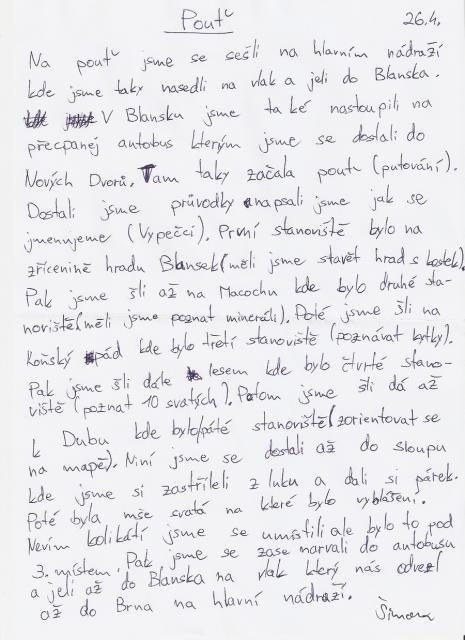 Pouť 26.4.
Na pouť jsme se sešli na hlavním nádraží
kde jsme taky nasedli na vlak a jeli do Blanska.
V Blansku jsme také nastoupili na
přecpanej autobus kterým jsme se dostali do
Nových Dvorů. Tam taky začala pouť (putování).
Dostali jsme průvodky a napsali jsme jak se
jmenujeme (Vypeččí). První stanoviště bylo na
zřícenině hradu Blansek (měli jsme stavět hrad s kostek).
Pak jsme šli až na Macochu kde bylo druhé sta-
noviště (měli jsme poznat mineráli). Poté jsme šli na
Koňský spád kde bylo třetí stanoviště (poznávat kytky).
Pak jsme šli dále lesem kde bylo čtvrté stano-
viště (poznat 10 svatých). Potom jsme šli dá až
k Dubu kde bylo páté stanoviště (zorientovat se
na mapě). Niní jsme se dostali až do sloupu
kde jsme si zastříleli z luku a dali si párek.
Poté byla mše svatá na které bylo vyhlášení.
Nevím kolikátí jsme se umístili ale bylo to pod
3. místem. Pak jsme se zase narvali do autobusu
a jeli až do Blanska na vlak který nás odvezl
až do Brna na hlavní nádraží.
Šimon